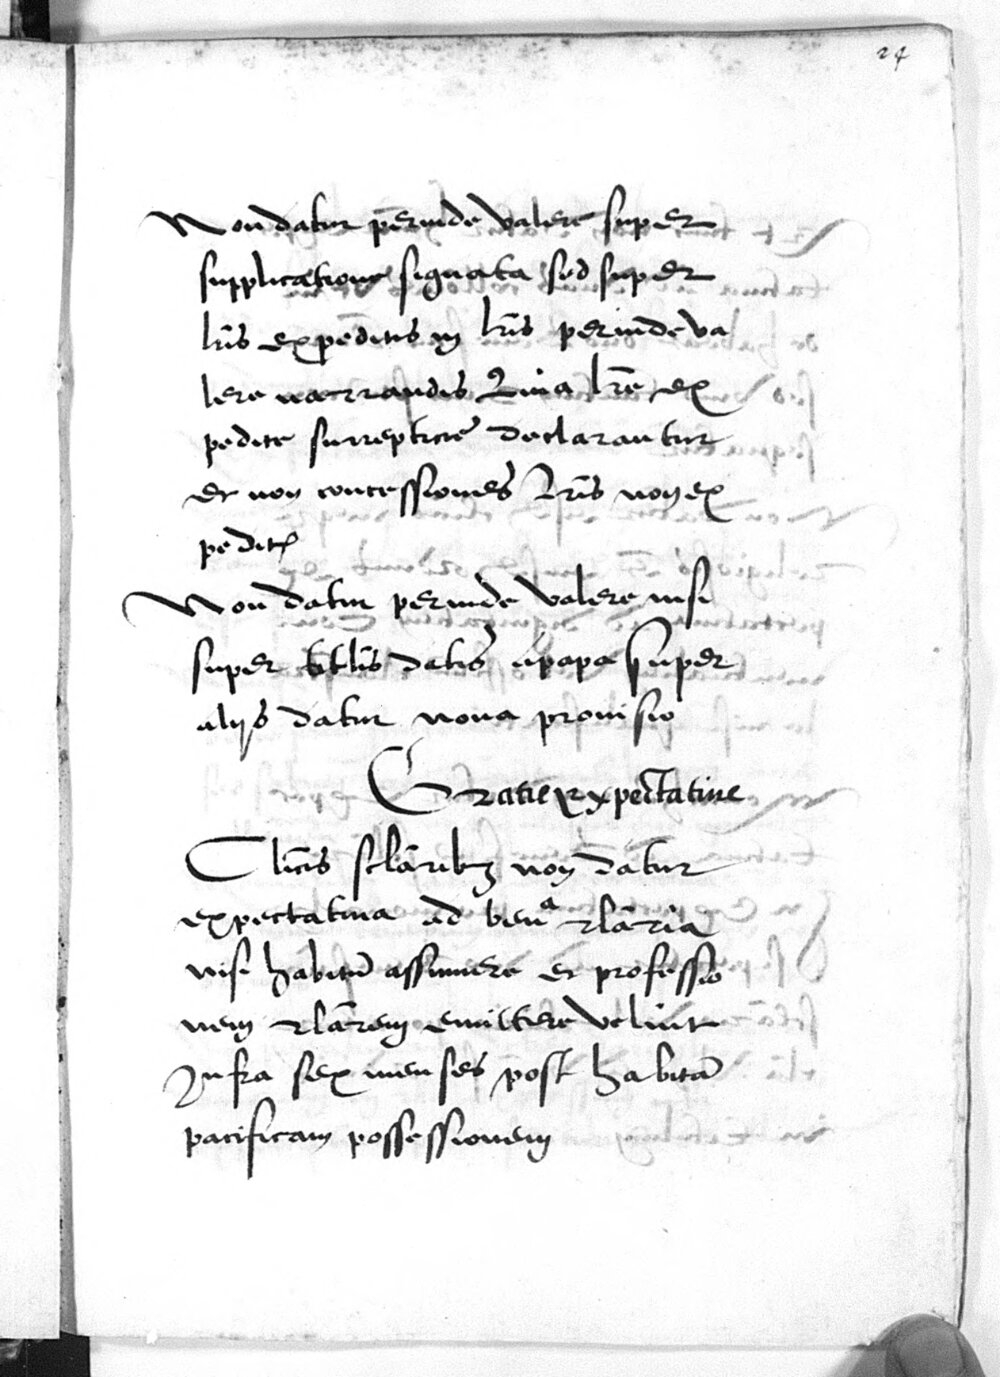 24
Non datur perinde valere super
supplicatione signata sed super
lr̄is expeditis in lr̄is perinde va
lere narrandis Quia lr̄e ex
pedite surrepticie declarantur
et non concessiones lr̄is non ex
pedit
Non datur perinde valere nisi
super titlis datis a papa super
alijs datur noua prouisio
Gratie Expectatiue
Cl̄icis sclāribz non datur
expectatiua ad ben^a rlāria
nisi habitū assumere et professio
nem rlārem emittere velint
Infra sex menses post habitā
pacificam possessionem